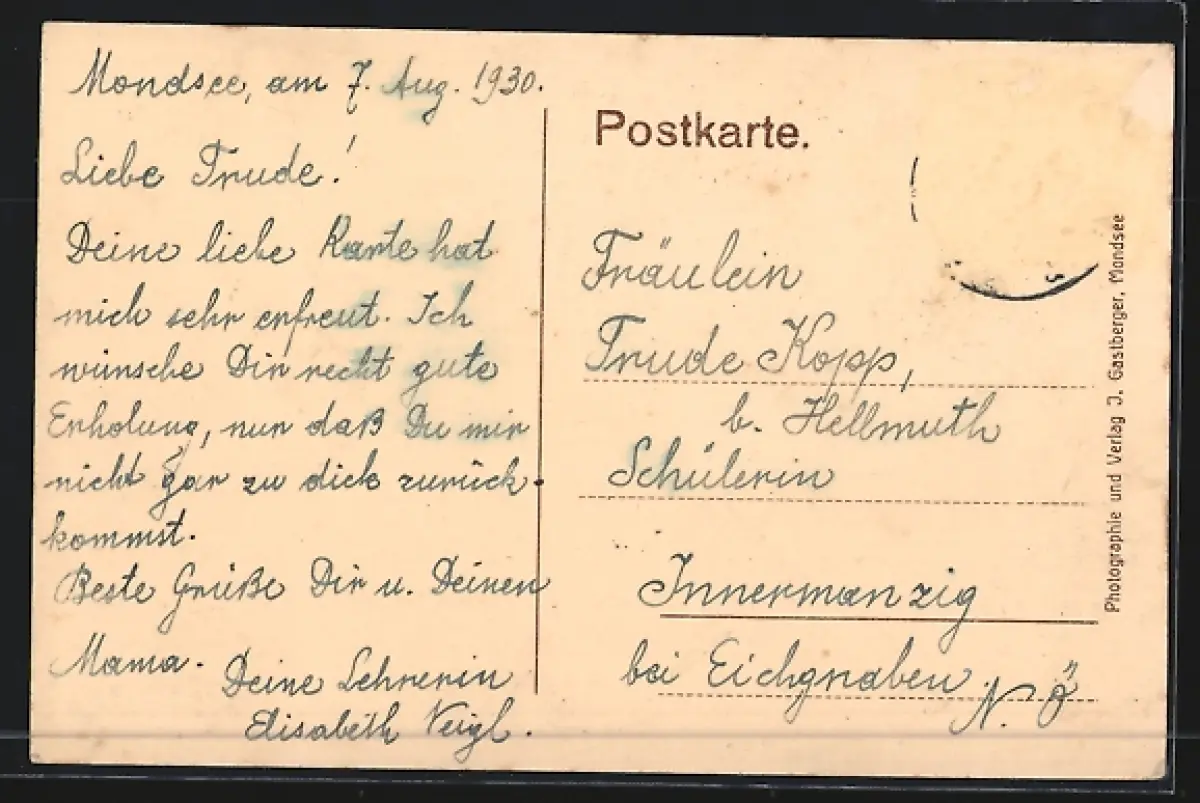 Mondsee, am 7. Aug. 1930.
Liebe Trude!
Deine liebe Karte hat
mich sehr erfreut. Ich
wünsche Dir recht gute
Erholung, nur daß Du mir
nicht gar zu dick zurück-
kommst.
Beste Grüße Dir u. Deinen
Mama.
Deine Lehrerin
Elisabeth Veigl.
Postkarte.
Fräulein
Trude Kopp,
b. Hellmuth
Schülerin
Innermanzig
bei Eichgraben
N. Ö
Photographie und Verlag J. Gastberger, Mondsee